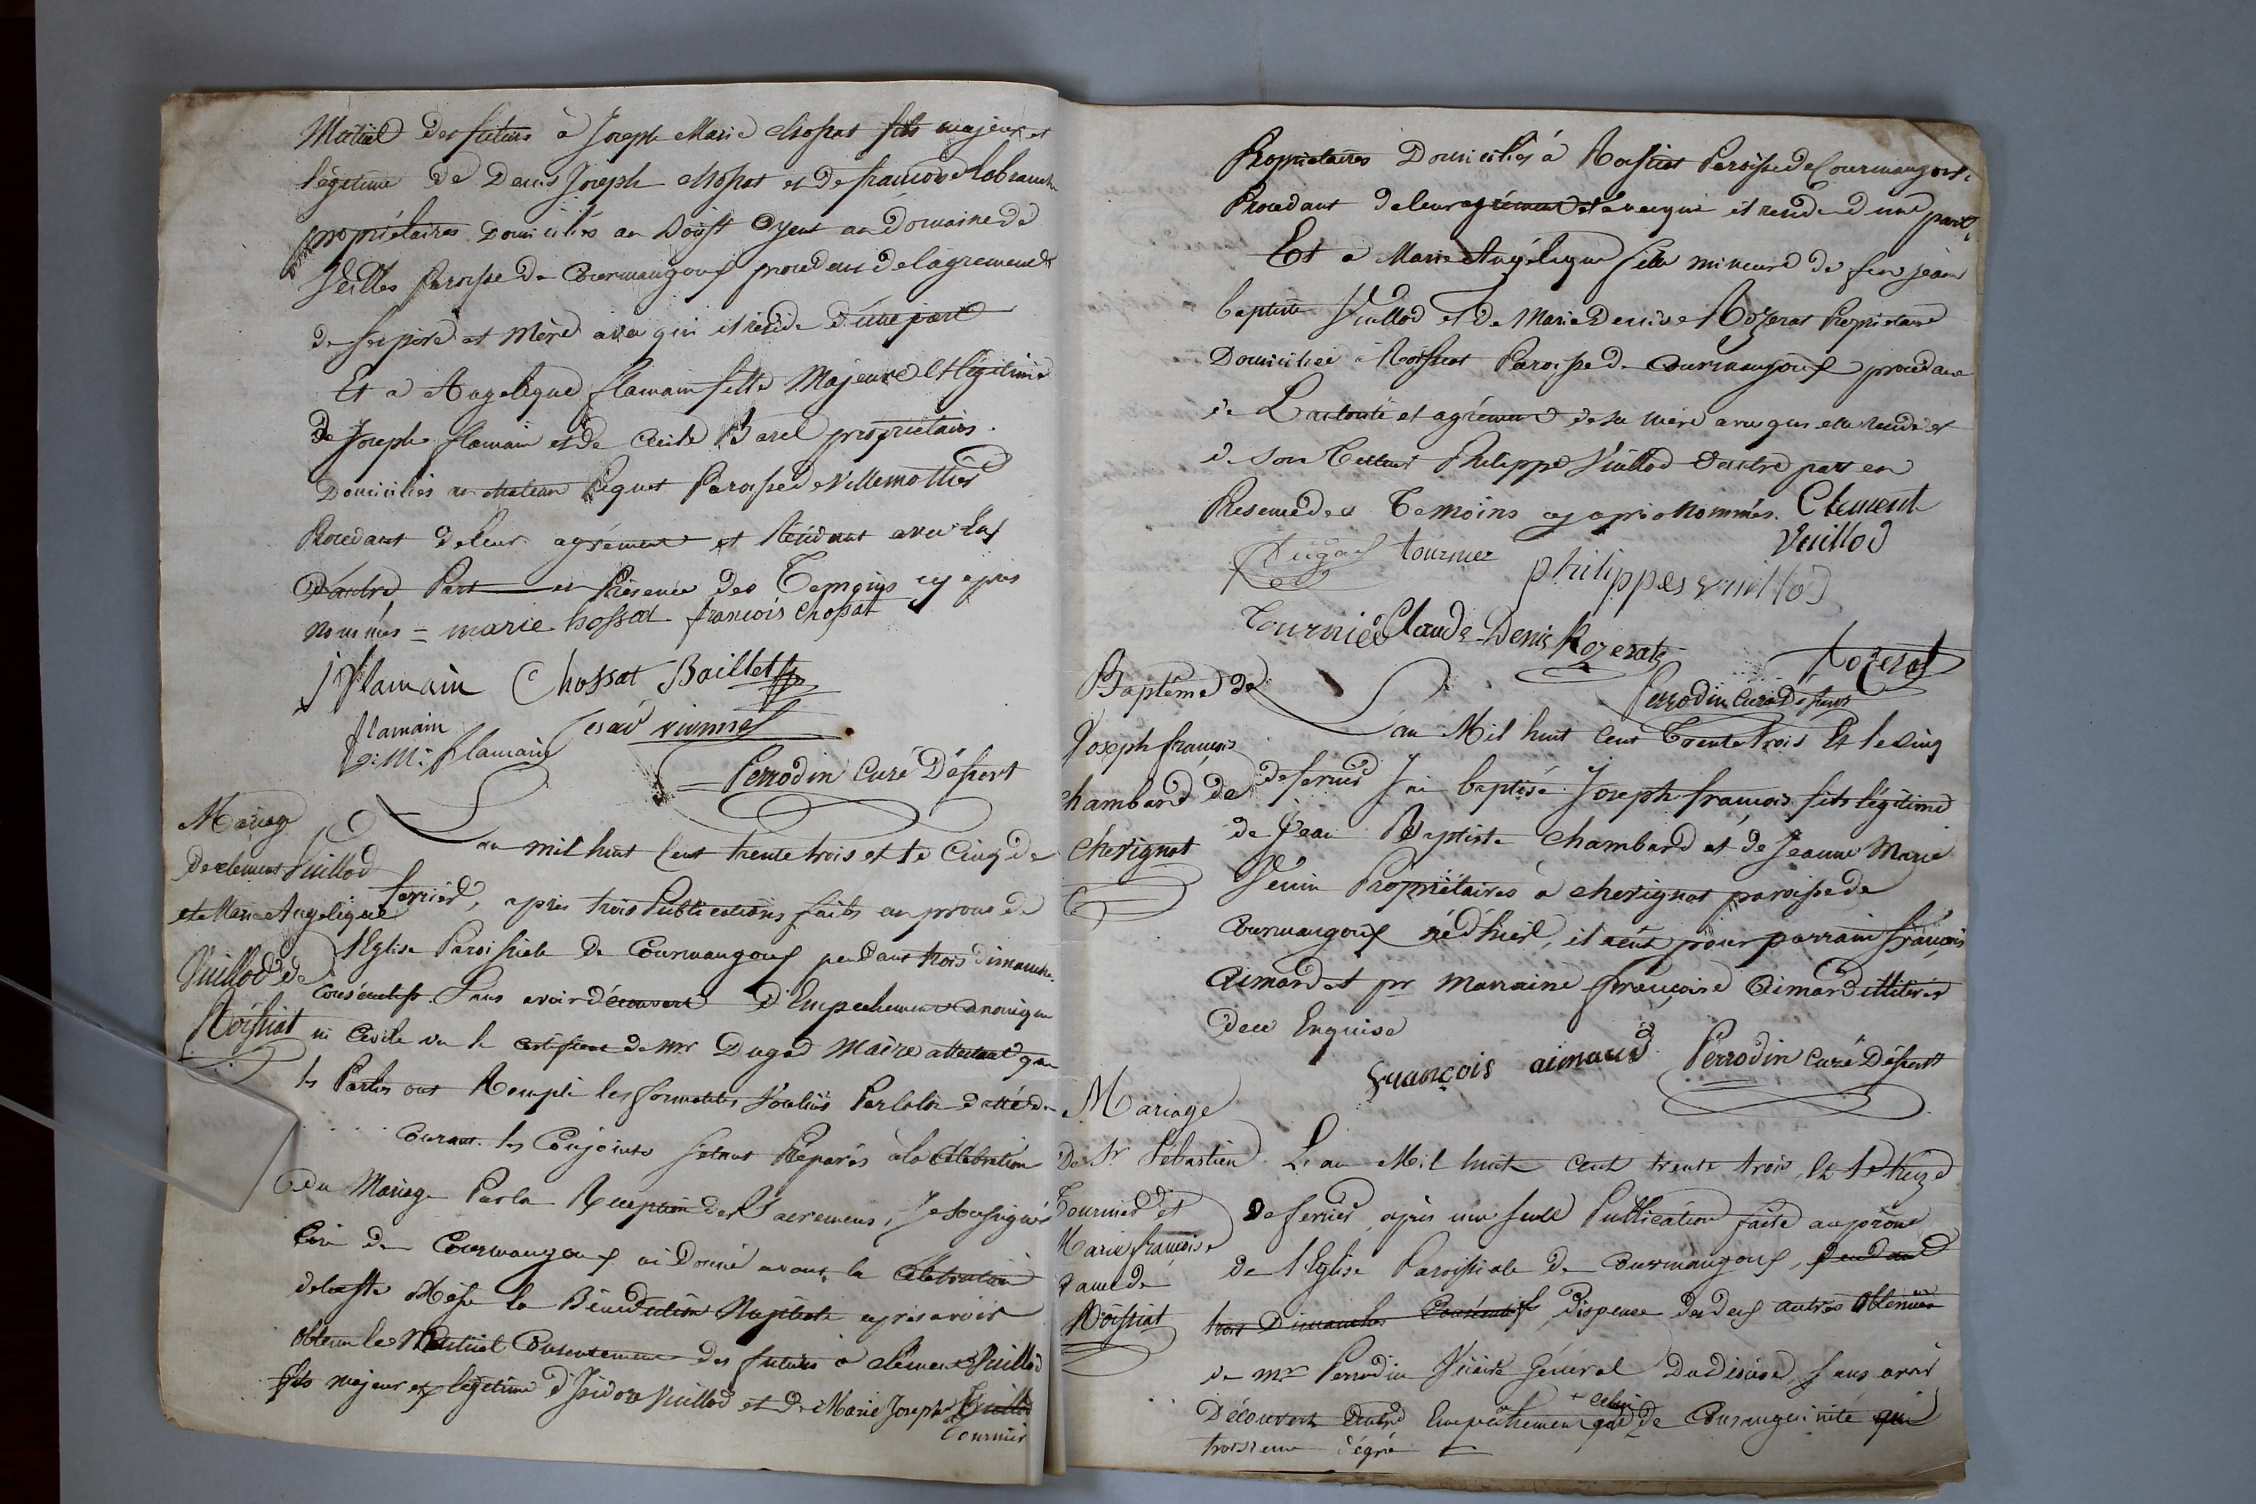 Mutuel des futurs à Joseph Marie Chossat fils majeur et
légitime de Denis Joseph Chossat et de francoise
propriétaires Domiciliés au Domaine de
paroisse de Courmangoux procedant de lagrement
de ses père et Mère avec qui il reside d'une part
Et a Angelique flamain fille Majeure et légitime
de Joseph flamain et de Cecile Borel propriétaires
Domiciliés au Paroisse de Villemottier
Procedant de leur agrément et Résidant avec Eux
D'autre Part en Présence des Temoins cy après
nommés = marie hossat francois Chossat
J flamain Chossat Baillet
flamain vionnet
j: m: flamain
Perrodin Curé Déssert
Mariage
De clément Vuillod
et de Marie Angelique
Vuillod de
Roissiat
L'an mil huit Cent trente trois et le Cinq de
fevrier, après trois Publications faites au prone de
l'Eglise Paroissiale de Courmangoux pendant trois dimanches
consécutifs Sans avoir découvert d'Empechement canonique
ni Civile vu le certificat de mr Dugad Maire attestant que
les Parties ont Rempli les formalités Voulües Par la loi datté du
Courant. les Conjoints s'etant Préparés à la Célébration
du Mariage Par la Réception des Sacremens, Je Soussigné
Curé de Courmangoux ai Donné avant la Célébration
de la sste Messe la Bénédiction Nuptiale après avoir
obtenu le Mutuel Consentement des futurs à clément Vuillod
fils majeur et légitime d'Isidore Vuillod et de Marie Joseph Vuillod
Tournier
Propriétaires Domiciliés à Roissiat Paroisse de Courmangoux
Procedant de leur agrément et avec qui il reside d'une part
Et a Marie Angélique fille mineure de feu jean
baptiste Vuillod et de Marie Denise Rozerat Propriétaire
Domiciliée à Roissiat Paroisse de Courmangoux procedant
de L'autorité et agrément de sa mère avec qui elle reside et
de son Tuteur Philippe Vuillod d'autre part en
Présence des Temoins cy après Nommés. Clement
Vuillod
Dugad tournier philippes vuillod
Tournier Claude Denis Rozerat Rozerat
Perrodin Curé Déssert
Baptême de
Joseph françois
Chambard de
Chevignat
L'an Mil huit Cent Trente trois Et le Cinq
de fevrier J'ai baptisé Joseph françois fils légitime
de Jean Baptiste Chambard et de Jeanne Marie
Propriétaires à chevignat paroisse de
Courmangoux né d'hier, il a eüt pour parrain françois
Aimard et pr Marraine françoise Aimard illitérés
de ce Enquise
françois aimard Perrodin Curé Déssert
Mariage
De Sr Sébastien
Tournier et
Marie françoise
de
Roissiat
L'an Mil huit cent trente trois, Et le treize
De fevrier, après une seule Publication faite au prône
de l'Eglise Paroissiale de Courmangoux, pendant
trois Dimanches Consécutifs, Dispense des deux autres obtenües
de mr Perrodin Vicaire Général Du diocèse, sans avoir
Découvert d'autre Empêchement que celui de Consanguinité qui
troisieme dégré